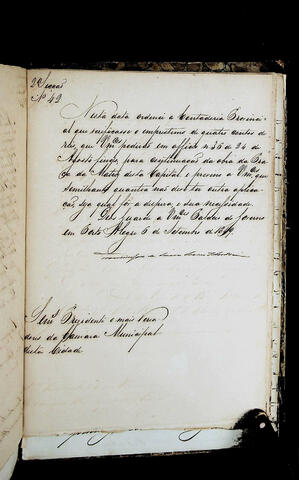 2ª Secção
Nº 42
Nesta data ordenei a Contadoria Provinci
al que verificasse o emprestimo de quatro contos de
reis, que Vmces pedirão em officio nº 35 de 24 de
Agosto findo, para continuação da obra da Pra
ça da Matriz desta Capital e previno a Vmces que
semilhante quantia não deve ter outra aplica
ção, seja qual fôr a despesa, e sua necessidade.
Deos Guarde a Vmces Palacio do Governo
em Porto Alegre 5 de Setembro de
Senrs Presidente e mais Verea
dores da Camara Municipal
desta Cidade